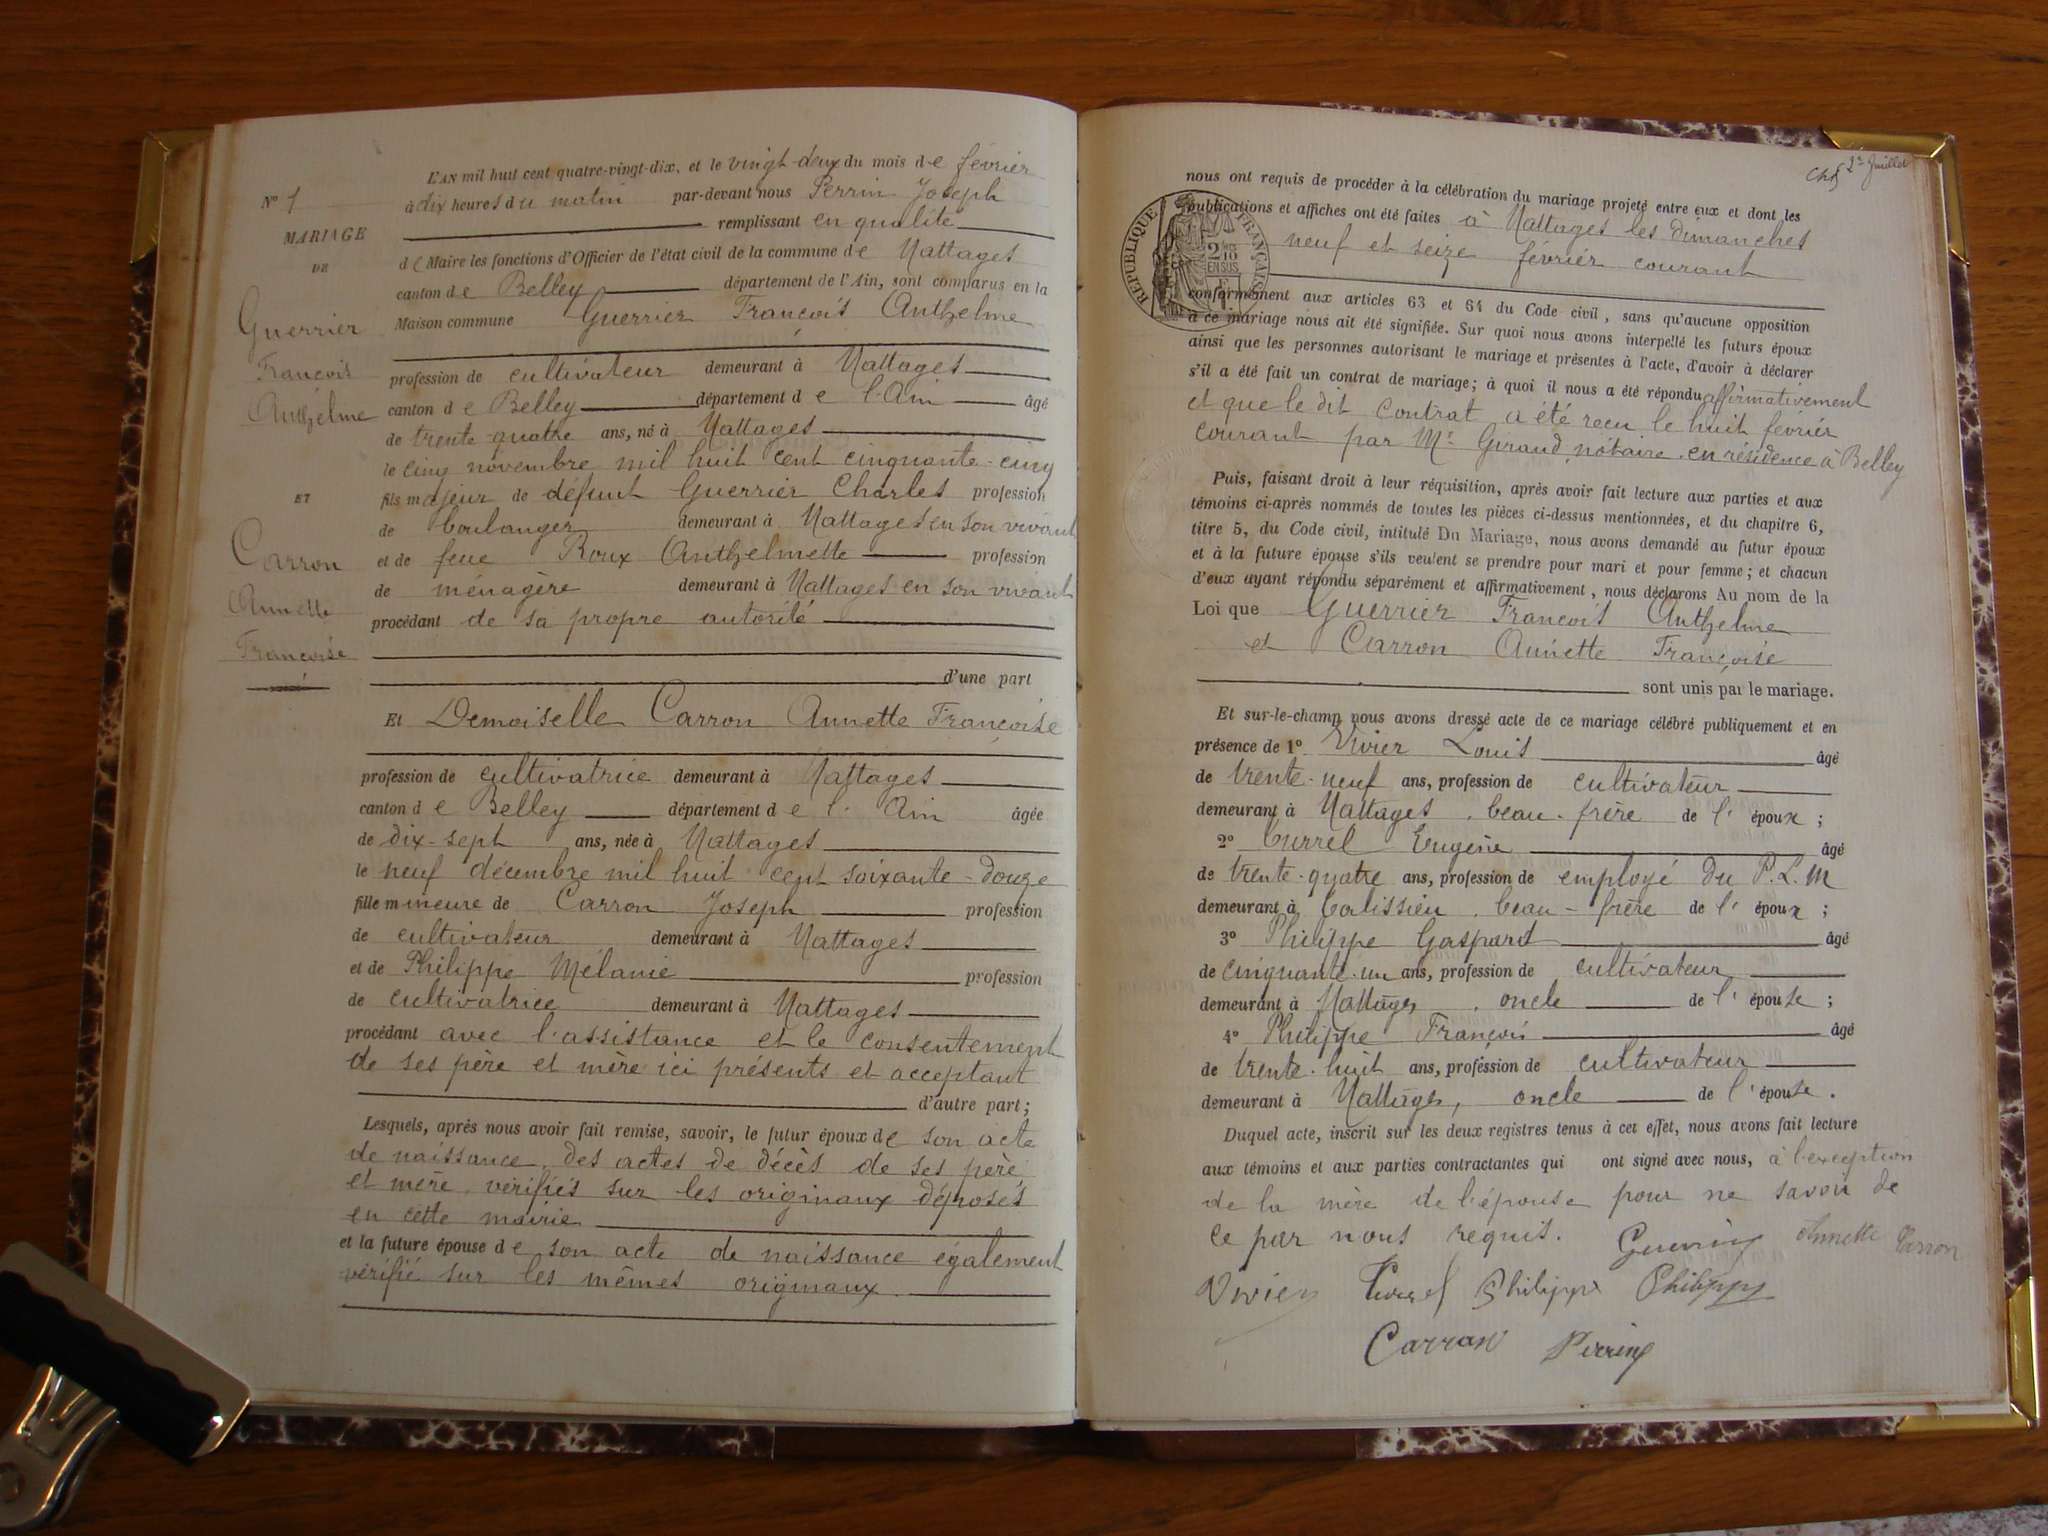 L'AN mil huit cent quatre-vingt-dix, et le vingt-deux du mois de février
N° 1
à dix heures du matin par-devant nous Perrin Joseph
remplissant en qualité
MARIAGE
DE
de Maire les fonctions d'Officier de l'état civil de la commune de Nattages
canton de Belley département de l'Ain, sont comparus en la
Maison commune Guerrier François Anthelme
Guerrier
François
Anthelme
profession de cultivateur demeurant à Nattages
canton de Belley département de l'Ain âgé
de trente-quatre ans, né à Nattages
le cinq novembre mil huit cent cinquante-cinq
ET
fils majeur de défunt Guerrier Charles profession
de boulanger demeurant à Nattages en son vivant
et de feue Roux Anthelmette profession
de ménagère demeurant à Nattages en son vivant
procédant de sa propre autorité
Carron
Annette
Françoise
d'une part
Et Demoiselle Carron Annette Françoise
profession de cultivatrice demeurant à Nattages
canton de Belley département de l'Ain âgée
de dix-sept ans, née à Nattages
le neuf décembre mil huit cent soixante-douze
fille mineure de Carron Joseph profession
de cultivateur demeurant à Nattages
et de Philippe Mélanie profession
de cultivatrice demeurant à Nattages
procédant avec l'assistance et le consentement
de ses père et mère ici présents et acceptant
d'autre part;
Lesquels, après nous avoir fait remise, savoir, le futur époux de son acte
de naissance, des actes de décès de ses père
et mère, vérifiés sur les originaux déposés
en cette mairie
et la future épouse de son acte de naissance également
vérifié sur les mêmes originaux.
Juillet
nous ont requis de procéder à la célébration du mariage projeté entre eux et dont les
publications et affiches ont été faites à Nattages les dimanches
neuf et seize février courant
RÉPUBLIQUE FRANÇAISE
2/10 EN SUS
conformément aux articles 63 et 64 du Code civil, sans qu'aucune opposition
à ce mariage nous ait été signifiée. Sur quoi nous avons interpellé les futurs époux
ainsi que les personnes autorisant le mariage et présentes à l'acte, d'avoir à déclarer
s'il a été fait un contrat de mariage; à quoi il nous a été répondu affirmativement
et que le dit contrat a été reçu le huit février
courant par Mr Giraud, notaire en résidence à Belley
Puis, faisant droit à leur réquisition, après avoir fait lecture aux parties et aux
témoins ci-après nommés de toutes les pièces ci-dessus mentionnées, et du chapitre 6,
titre 5, du Code civil, intitulé Du Mariage, nous avons demandé au futur époux
et à la future épouse s'ils veulent se prendre pour mari et pour femme; et chacun
d'eux ayant répondu séparément et affirmativement, nous déclarons Au nom de la
Loi que Guerrier François Anthelme
et Carron Annette Françoise
sont unis par le mariage.
Et sur-le-champ nous avons dressé acte de ce mariage célébré publiquement et en
présence de 1° Vivier Louis âgé
de trente-neuf ans, profession de cultivateur
demeurant à Nattages, beau-frère de l'époux;
2° Currel Eugène âgé
de trente-quatre ans, profession de employé du P.L.M
demeurant à beau-frère de l'époux;
3° Philippe Gaspard âgé
de cinquante-un ans, profession de cultivateur
demeurant à Nattages, oncle de l'épouse;
4° Philippe François âgé
de trente-huit ans, profession de cultivateur
demeurant à Nattages, oncle de l'épouse.
Duquel acte, inscrit sur les deux registres tenus à cet effet, nous avons fait lecture
aux témoins et aux parties contractantes qui ont signé avec nous, à l'exception
de la mère de l'épouse pour ne savoir de
ce par nous requis. Guerrier Annette Carron
Vivier Philippe Philippe
Carron Perrin